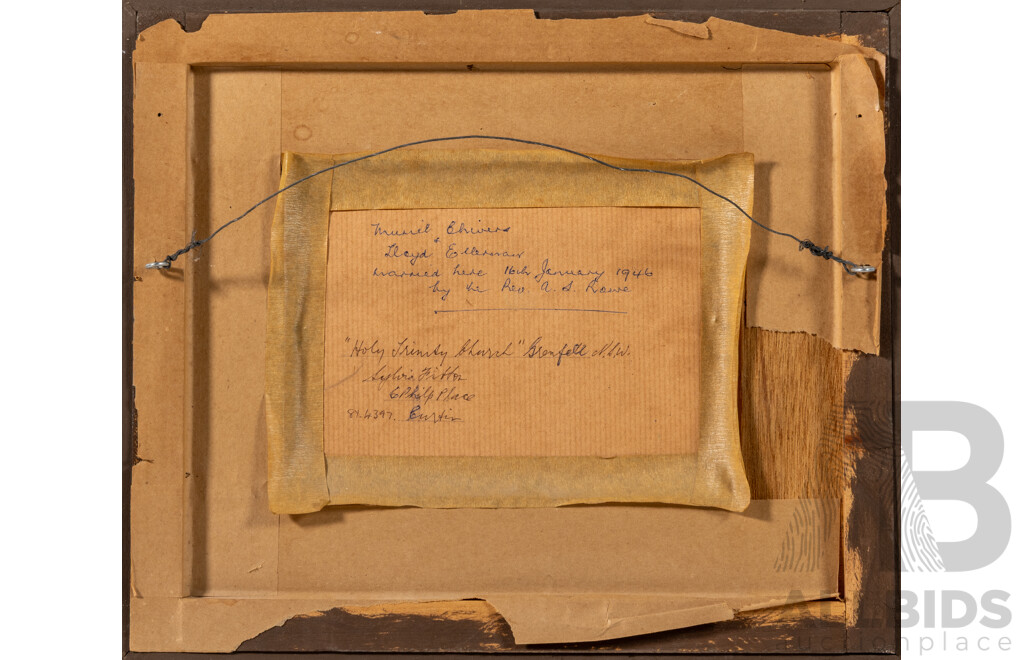 Muriel Chivers
&
Lloyd Ellerman
married here 16th January 1946
by the Rev. A. S. Rowe
"Holy Trinity Church" Grenfell N.S.W.
Sylvia Fitton
6 Philp Place
81.4397. Curtin
AB
ALLBIDS
auctionplace